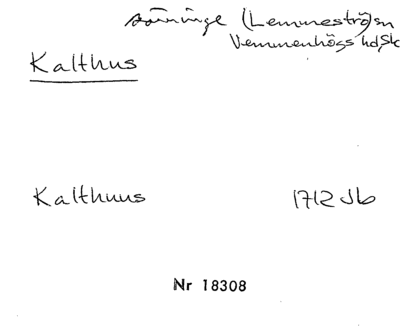 (Lemmeströ) sn
Vemmenhögs hd, Sk
Kalthus
Kalthuus 1712 Jb
Nr 18308